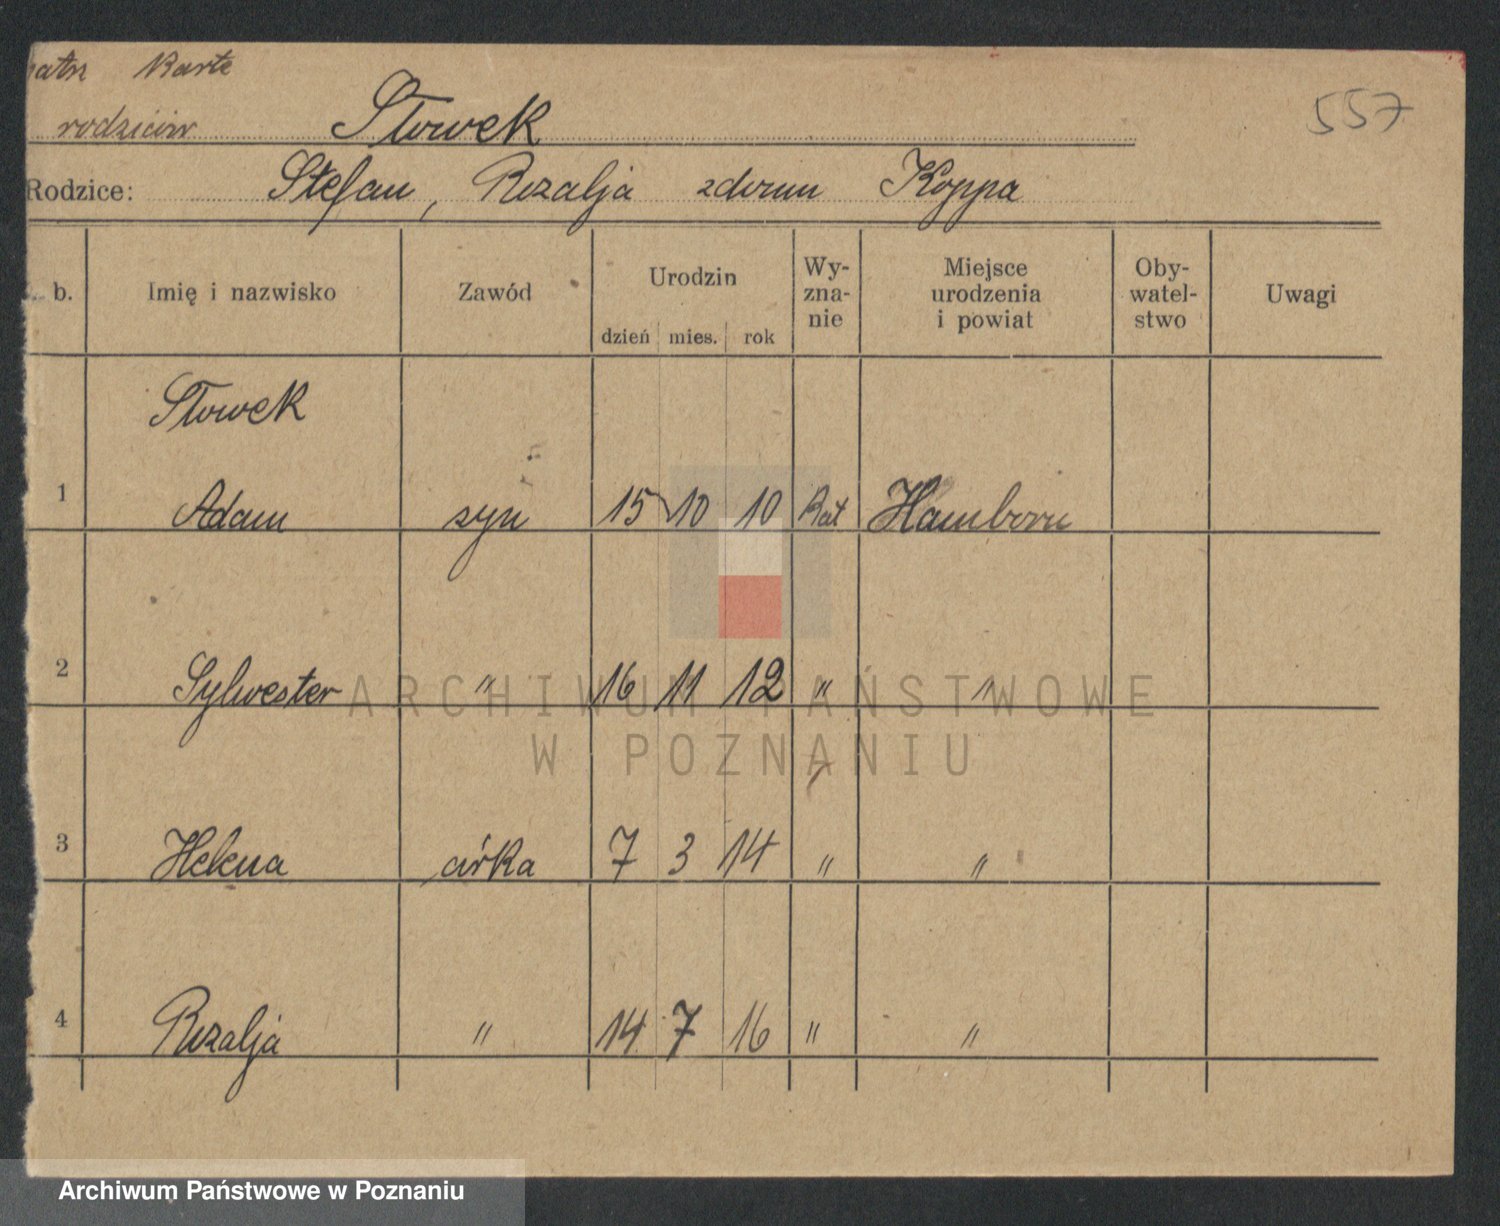 Karte
rodziców Słowek
557
Rodzice: Stefan, Rozalja zdomu Koppa
b. Imię i nazwisko Zawód Urodzin dzień mies. rok Wy-zna-nie Miejsce urodzenia i powiat Oby-watel-stwo Uwagi
Słowek
1 Adam syn 15 10 10 Kat Hamborn
2 Sylwester " 16 11 12 " "
ARCHIWUM PAŃSTWOWE
W POZNANIU
3 Helena córka 7 3 14 " "
4 Rozalja " 14 7 16 " "
Archiwum Państwowe w Poznaniu